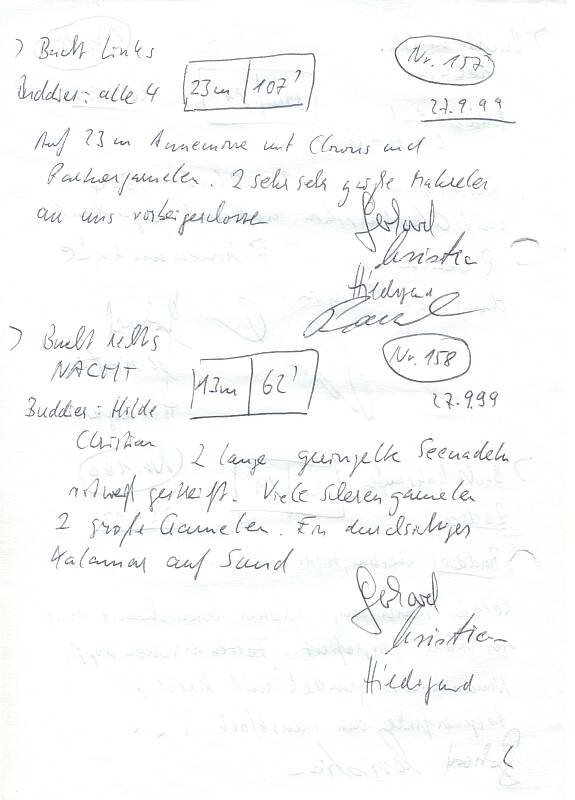 ) Bucht Links
Nr. 157
Buddies: alle 4
23m 107'
27.9.99
Auf 23m Annemone mit Clowns und
Partnergarnelen. 2 sehr sehr große Makrelen
an uns vorbeigeschossen
Gerhard
Christian
Hildegard
) Bucht rechts
Nr. 158
NACHT
13m 62'
27.9.99
Buddies: Hilde
Christian
2 lange geringelte Seenadeln
rotweiß gestreift. Viele Scherengarnelen
2 große Garnelen. Ein durchsichtiger
Kalamar auf Sand
Gerhard
Christian
Hildegard